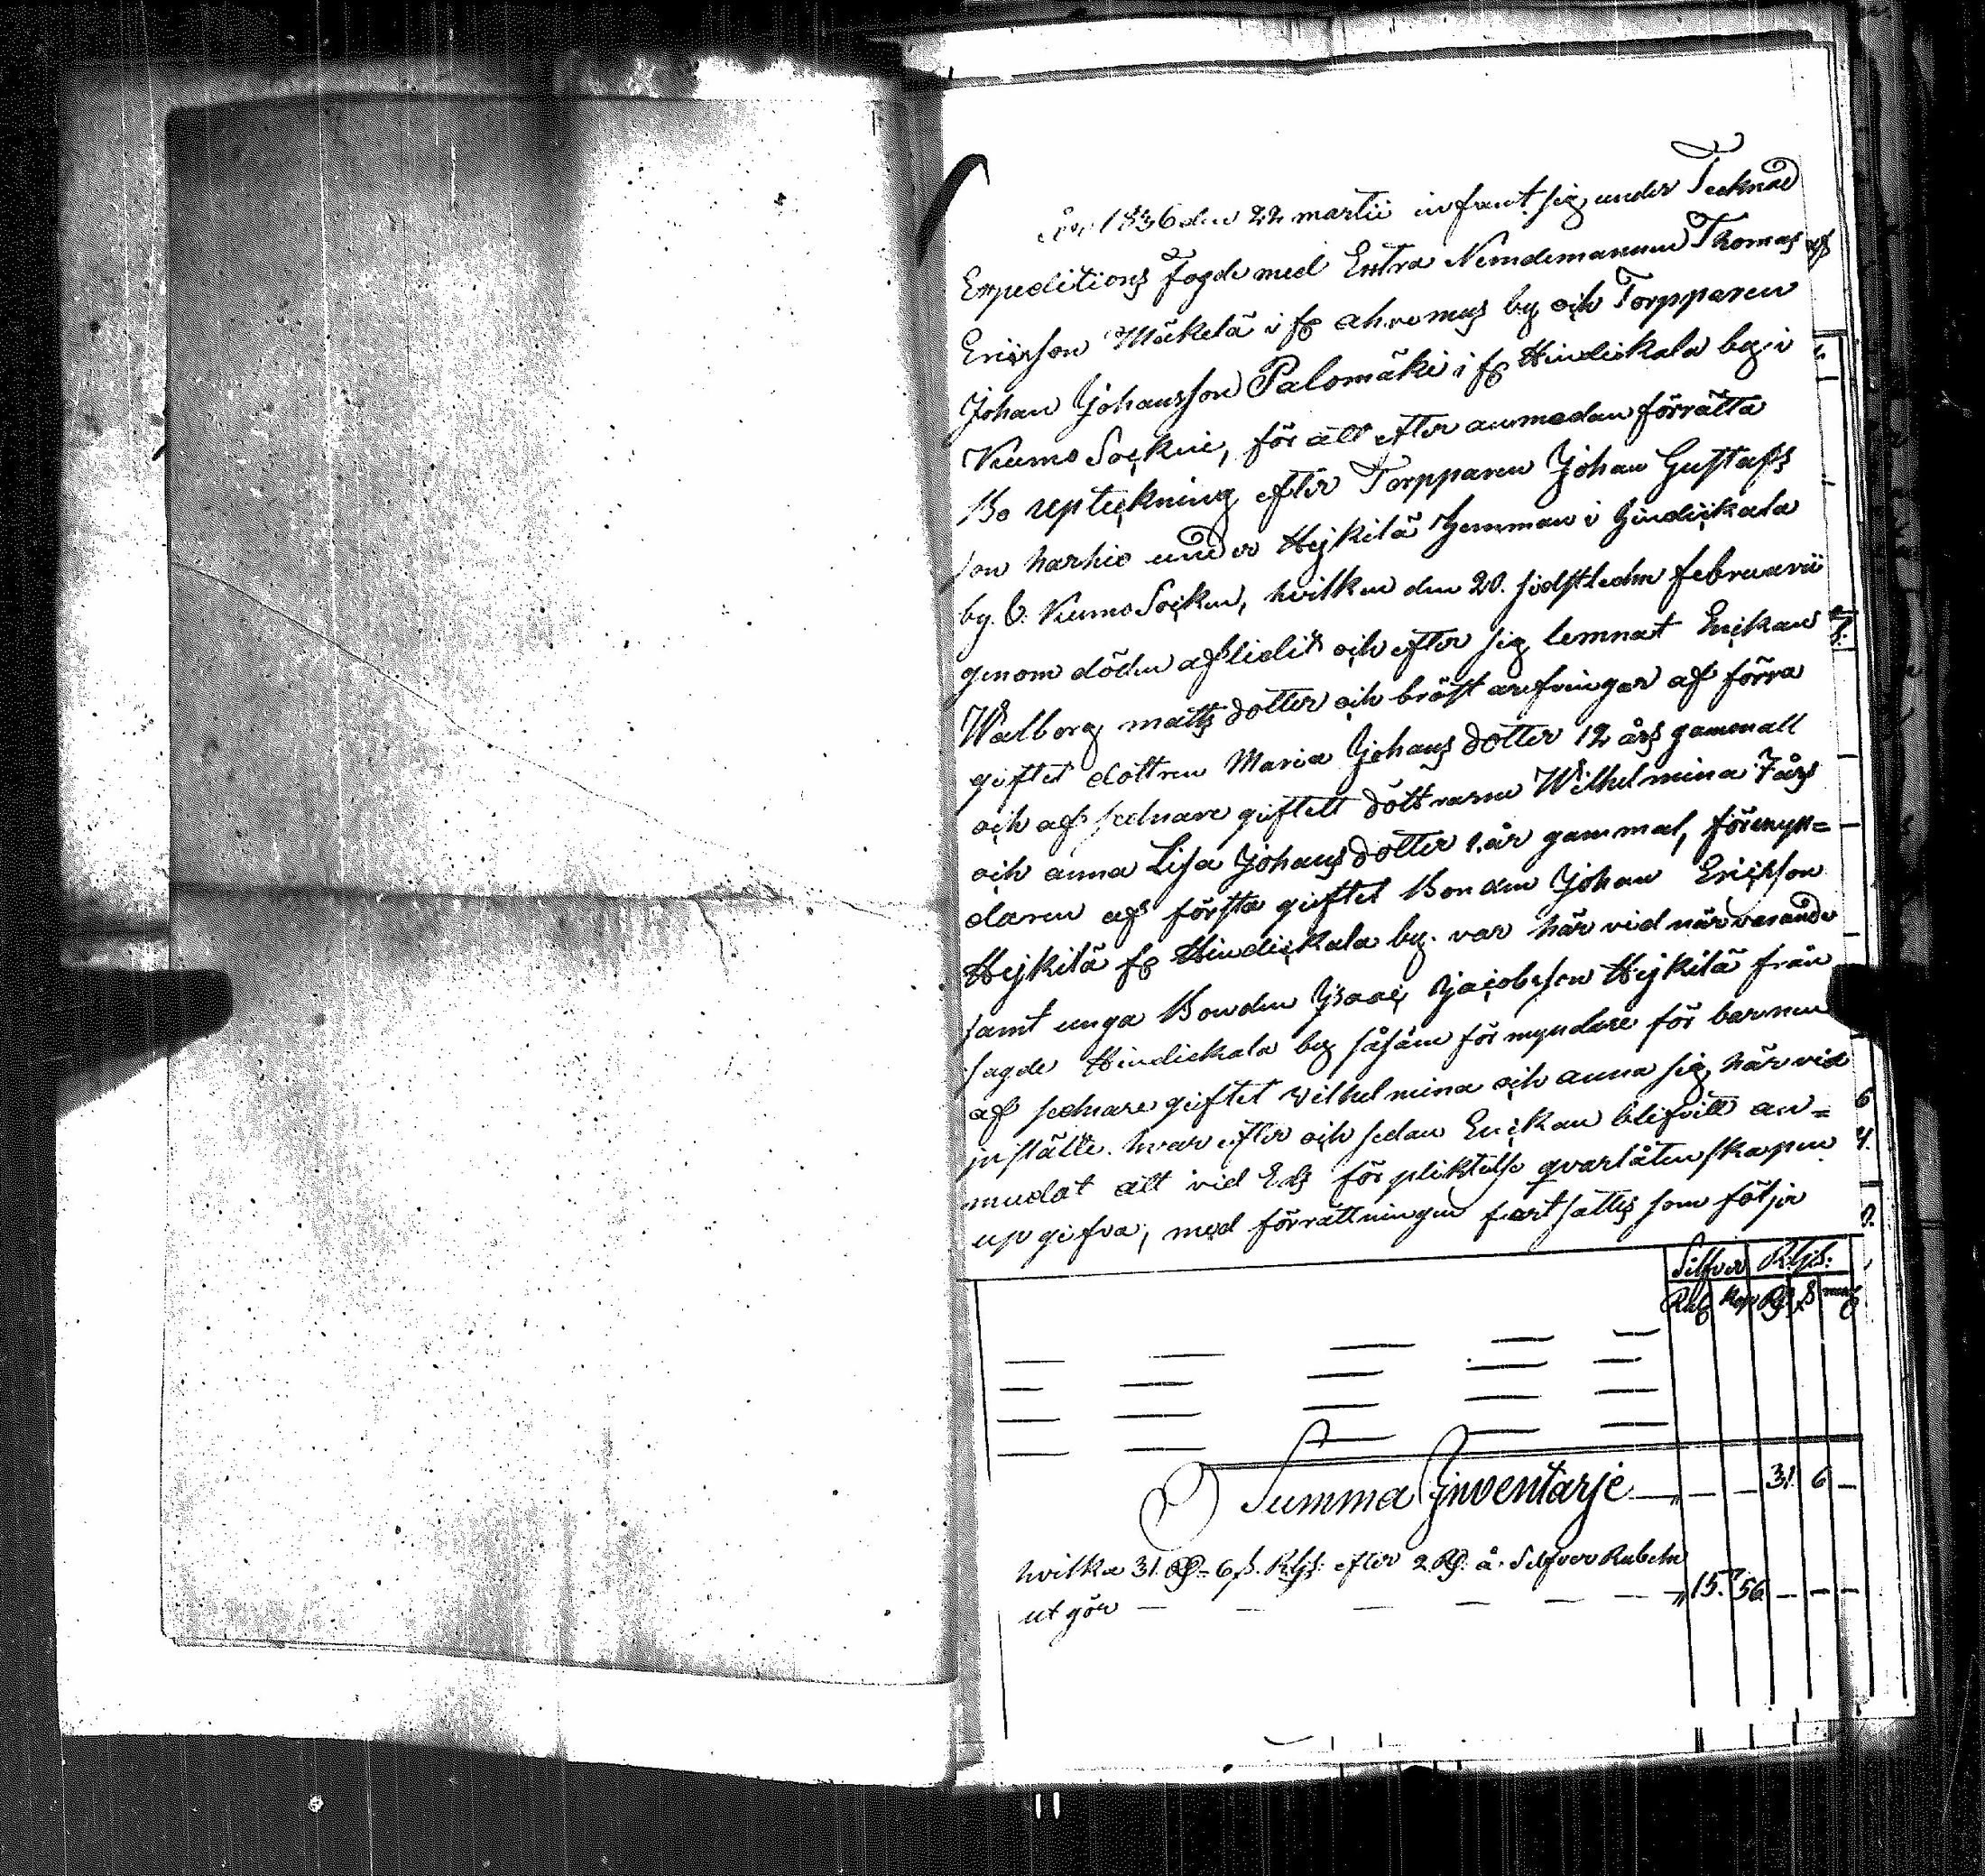 År 1836 den 22 martii infant sig under Tecknad
Expeditions Fogde med Extra Nemdemannen Thomas
Ericsson Mäkelä i fr ahvenus by och Torpparen
Johan Johansson Palomäki i fr Hindickala by i
Kumo Sockne, för att efter anmodan förrätta
Bo upteckning efter Torpparen Johan Gustafs
son harhio under Hejkilä Hemman i Hindickala
by. O. Kumo Socken, hvilken den 20. sidstledne februarii
genom döden aflidit och efter sig lemnat Enckan
Walborg matts dotter och bröst arfvingar af förra
giftet dottren Maria Johans dotter 12 års gammall
och af sednare giftett döttrarne Wilhelmina 7 års
och anna Lisa Johans dotter 1. år gammal, förmyn=
daren af första giftet Bonden Johan Ericsson
Hejkilä fr Hindickala by. var här vid närvarande
samt unga Bonden Isaac Jacobsson Hejkilä från
sagde Hindickala by såsom för myndare för barnen
af sednare giftet vilhelmina och anna sig här vid
in stälte. hvar efter och sedan Enckan blifvitt an=
mudat att vid Eds för pliktelse qvarlåtenskapen
up gifva, med förrättningen fort sattes som följer
Silfver R:gs:
Rub Kop Rd s
Summa Inventarje 31 6 —
hvilka 31. Rd = 6 s. R:gs: efter 2. Rd. å. Silfver Rubeln
ut gör — — — — — 15. 56 — — —